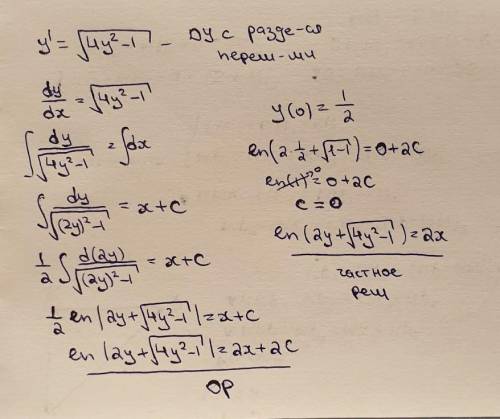 y' = √(4y²-1) - ДУ с разде-ся
перем-ми
dy/dx = √(4y²-1)
∫ dy/√(4y²-1) = ∫dx
∫ dy/√((2y)²-1) = x+C
1/2 ∫ d(2y)/√((2y)²-1) = x+C
1/2 ln|2y+√(4y²-1)| = x+C
ln|2y+√(4y²-1)| = 2x+2C
ОР
y(0) = 1/2
ln(2·1/2+√(1-1)) = 0+2C
ln(1) = 0+2C
c = 0
ln(2y+√(4y²-1)) = 2x
частное
реш